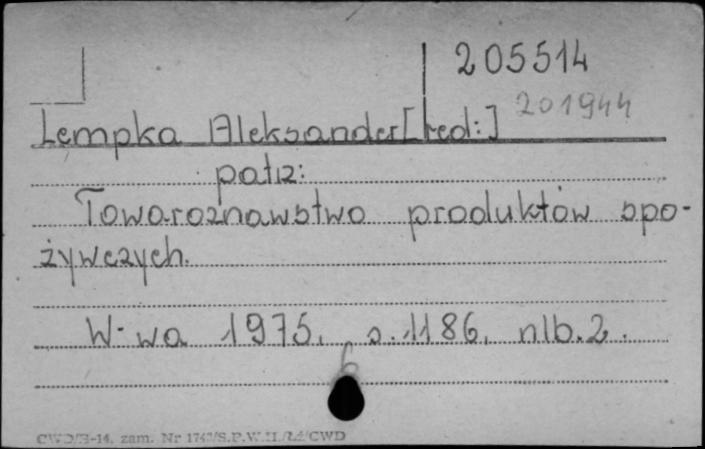 205514
201944
Lempka Aleksander [red:]
patrz:
Towaroznawstwo produktów spo-
żywczych.
W-wa 1975, s. 1186, nlb. 2.
6
zam. Nr